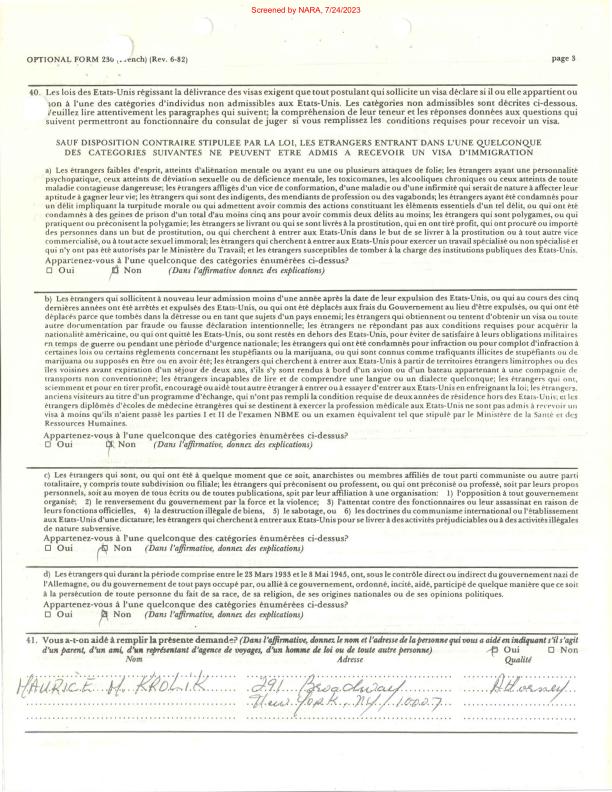 Screened by NARA, 7/24/2023
OPTIONAL FORM 230 (French) (Rev. 6-82) page 3
40. Les lois des Etats-Unis régissant la délivrance des visas exigent que tout postulant qui sollicite un visa déclare si il ou elle appartient ou
non à l'une des catégories d'individus non admissibles aux Etats-Unis. Les catégories non admissibles sont décrites ci-dessous.
Veuillez lire attentivement les paragraphes qui suivent; la compréhension de leur teneur et les réponses données aux questions qui
suivent permettront au fonctionnaire du consulat de juger si vous remplissez les conditions requises pour recevoir un visa.
SAUF DISPOSITION CONTRAIRE STIPULEE PAR LA LOI, LES ETRANGERS ENTRANT DANS L'UNE QUELCONQUE
DES CATEGORIES SUIVANTES NE PEUVENT ETRE ADMIS A RECEVOIR UN VISA D'IMMIGRATION
a) Les étrangers faibles d'esprit, atteints d'aliénation mentale ou ayant eu une ou plusieurs attaques de folie; les étrangers ayant une personnalité
psychopatique, ceux atteints de déviation sexuelle ou de déficience mentale, les toxicomanes, les alcooliques chroniques ou ceux atteints de toute
maladie contagieuse dangereuse; les étrangers affligés d'un vice de conformation, d'une maladie ou d'une infirmité qui serait de nature à affecter leur
aptitude à gagner leur vie; les étrangers qui sont des indigents, des mendiants de profession ou des vagabonds; les étrangers ayant été condamnés pour
un délit impliquant la turpitude morale ou qui admettent avoir commis des actions constituant les éléments essentiels d'un tel délit, ou qui ont été
condamnés à des peines de prison d'un total d'au moins cinq ans pour avoir commis deux délits au moins; les étrangers qui sont polygames, ou qui
pratiquent ou préconisent la polygamie; les étrangers se livrant ou qui se sont livrés à la prostitution, qui en ont tiré profit, qui ont procuré ou importé
des personnes dans un but de prostitution, ou qui cherchent à entrer aux Etats-Unis dans le but de se livrer à la prostitution ou à tout autre vice
commercialisé, ou à tout acte sexuel immoral; les étrangers qui cherchent à entrer aux Etats-Unis pour exercer un travail spécialisé ou non spécialisé et
qui n'y ont pas été autorisés par le Ministère du Travail; et les étrangers susceptibles de tomber à la charge des institutions publiques des Etats-Unis.
Appartenez-vous à l'une quelconque des catégories énumérées ci-dessus?
☐ Oui ☒ Non (Dans l'affirmative donnez des explications)
b) Les étrangers qui sollicitent à nouveau leur admission moins d'une année après la date de leur expulsion des Etats-Unis, ou qui au cours des cinq
dernières années ont été arrêtés et expulsés des Etats-Unis, ou qui ont été déplacés aux frais du Gouvernement au lieu d'être expulsés, ou qui ont été
déplacés parce que tombés dans la détresse ou en tant que sujets d'un pays ennemi; les étrangers qui obtiennent ou tentent d'obtenir un visa ou toute
autre documentation par fraude ou fausse déclaration intentionnelle; les étrangers ne répondant pas aux conditions requises pour acquérir la
nationalité américaine, ou qui ont quitté les Etats-Unis, ou sont restés en dehors des Etats-Unis, pour éviter de satisfaire à leurs obligations militaires
en temps de guerre ou pendant une période d'urgence nationale; les étrangers qui ont été condamnés pour infraction ou pour complot d'infraction à
certaines lois ou certains règlements concernant les stupéfiants ou la marijuana, ou qui sont connus comme trafiquants illicites de stupéfiants ou de
marijuana ou supposés en être ou en avoir été; les étrangers qui cherchent à entrer aux Etats-Unis à partir de territoires étrangers limitrophes ou des
îles voisines avant expiration d'un séjour de deux ans, s'ils s'y sont rendus à bord d'un avion ou d'un bateau appartenant à une compagnie de
transports non conventionnée; les étrangers incapables de lire et de comprendre une langue ou un dialecte quelconque; les étrangers qui ont,
sciemment et pour en tirer profit, encouragé ou aidé tout autre étranger à entrer ou à essayer d'entrer aux Etats-Unis en enfreignant la loi; les étrangers,
anciens visiteurs au titre d'un programme d'échange, qui n'ont pas rempli la condition requise de deux années de résidence hors des Etats-Unis; et les
étrangers diplômés d'écoles de médecine étrangères qui se destinent à exercer la profession médicale aux Etats-Unis ne sont pas admis à recevoir un
visa à moins qu'ils n'aient passé les parties I et II de l'examen NBME ou un examen équivalent tel que stipulé par le Ministère de la Santé et des
Ressources Humaines.
Appartenez-vous à l'une quelconque des catégories énumérées ci-dessus?
☐ Oui ☒ Non (Dans l'affirmative, donnez des explications)
c) Les étrangers qui sont, ou qui ont été à quelque moment que ce soit, anarchistes ou membres affiliés de tout parti communiste ou autre parti
totalitaire, y compris toute subdivision ou filiale; les étrangers qui préconisent ou professent, ou qui ont préconisé ou professé, soit par leurs propos
personnels, soit au moyen de tous écrits ou de toutes publications, soit par leur affiliation à une organisation: 1) l'opposition à tout gouvernement
organisé; 2) le renversement du gouvernement par la force et la violence; 3) l'attentat contre des fonctionnaires ou leur assassinat en raison de
leurs fonctions officielles, 4) la destruction illégale de biens, 5) le sabotage, ou 6) les doctrines du communisme international ou l'établissement
aux Etats-Unis d'une dictature; les étrangers qui cherchent à entrer aux Etats-Unis pour se livrer à des activités préjudiciables ou à des activités illégales
de nature subversive.
Appartenez-vous à l'une quelconque des catégories énumérées ci-dessus?
☐ Oui ☒ Non (Dans l'affirmative, donnez des explications)
d) Les étrangers qui durant la période comprise entre le 23 Mars 1933 et le 8 Mai 1945, ont, sous le contrôle direct ou indirect du gouvernement nazi de
l'Allemagne, ou du gouvernement de tout pays occupé par, ou allié à ce gouvernement, ordonné, incité, aidé, participé de quelque manière que ce soit
à la persécution de toute personne du fait de sa race, de sa religion, de ses origines nationales ou de ses opinions politiques.
Appartenez-vous à l'une quelconque des catégories énumérées ci-dessus?
☐ Oui ☒ Non (Dans l'affirmative, donnez des explications)
41. Vous a-t-on aidé à remplir la présente demande? (Dans l'affirmative, donnez le nom et l'adresse de la personne qui vous a aidé en indiquant s'il s'agit
d'un parent, d'un ami, d'un représentant d'agence de voyages, d'un homme de loi ou de toute autre personne) ☒ Oui ☐ Non
Nom Adresse Qualité
MAURICE H. KROLIK 291 Broadway Attorney
New York, NY 10007